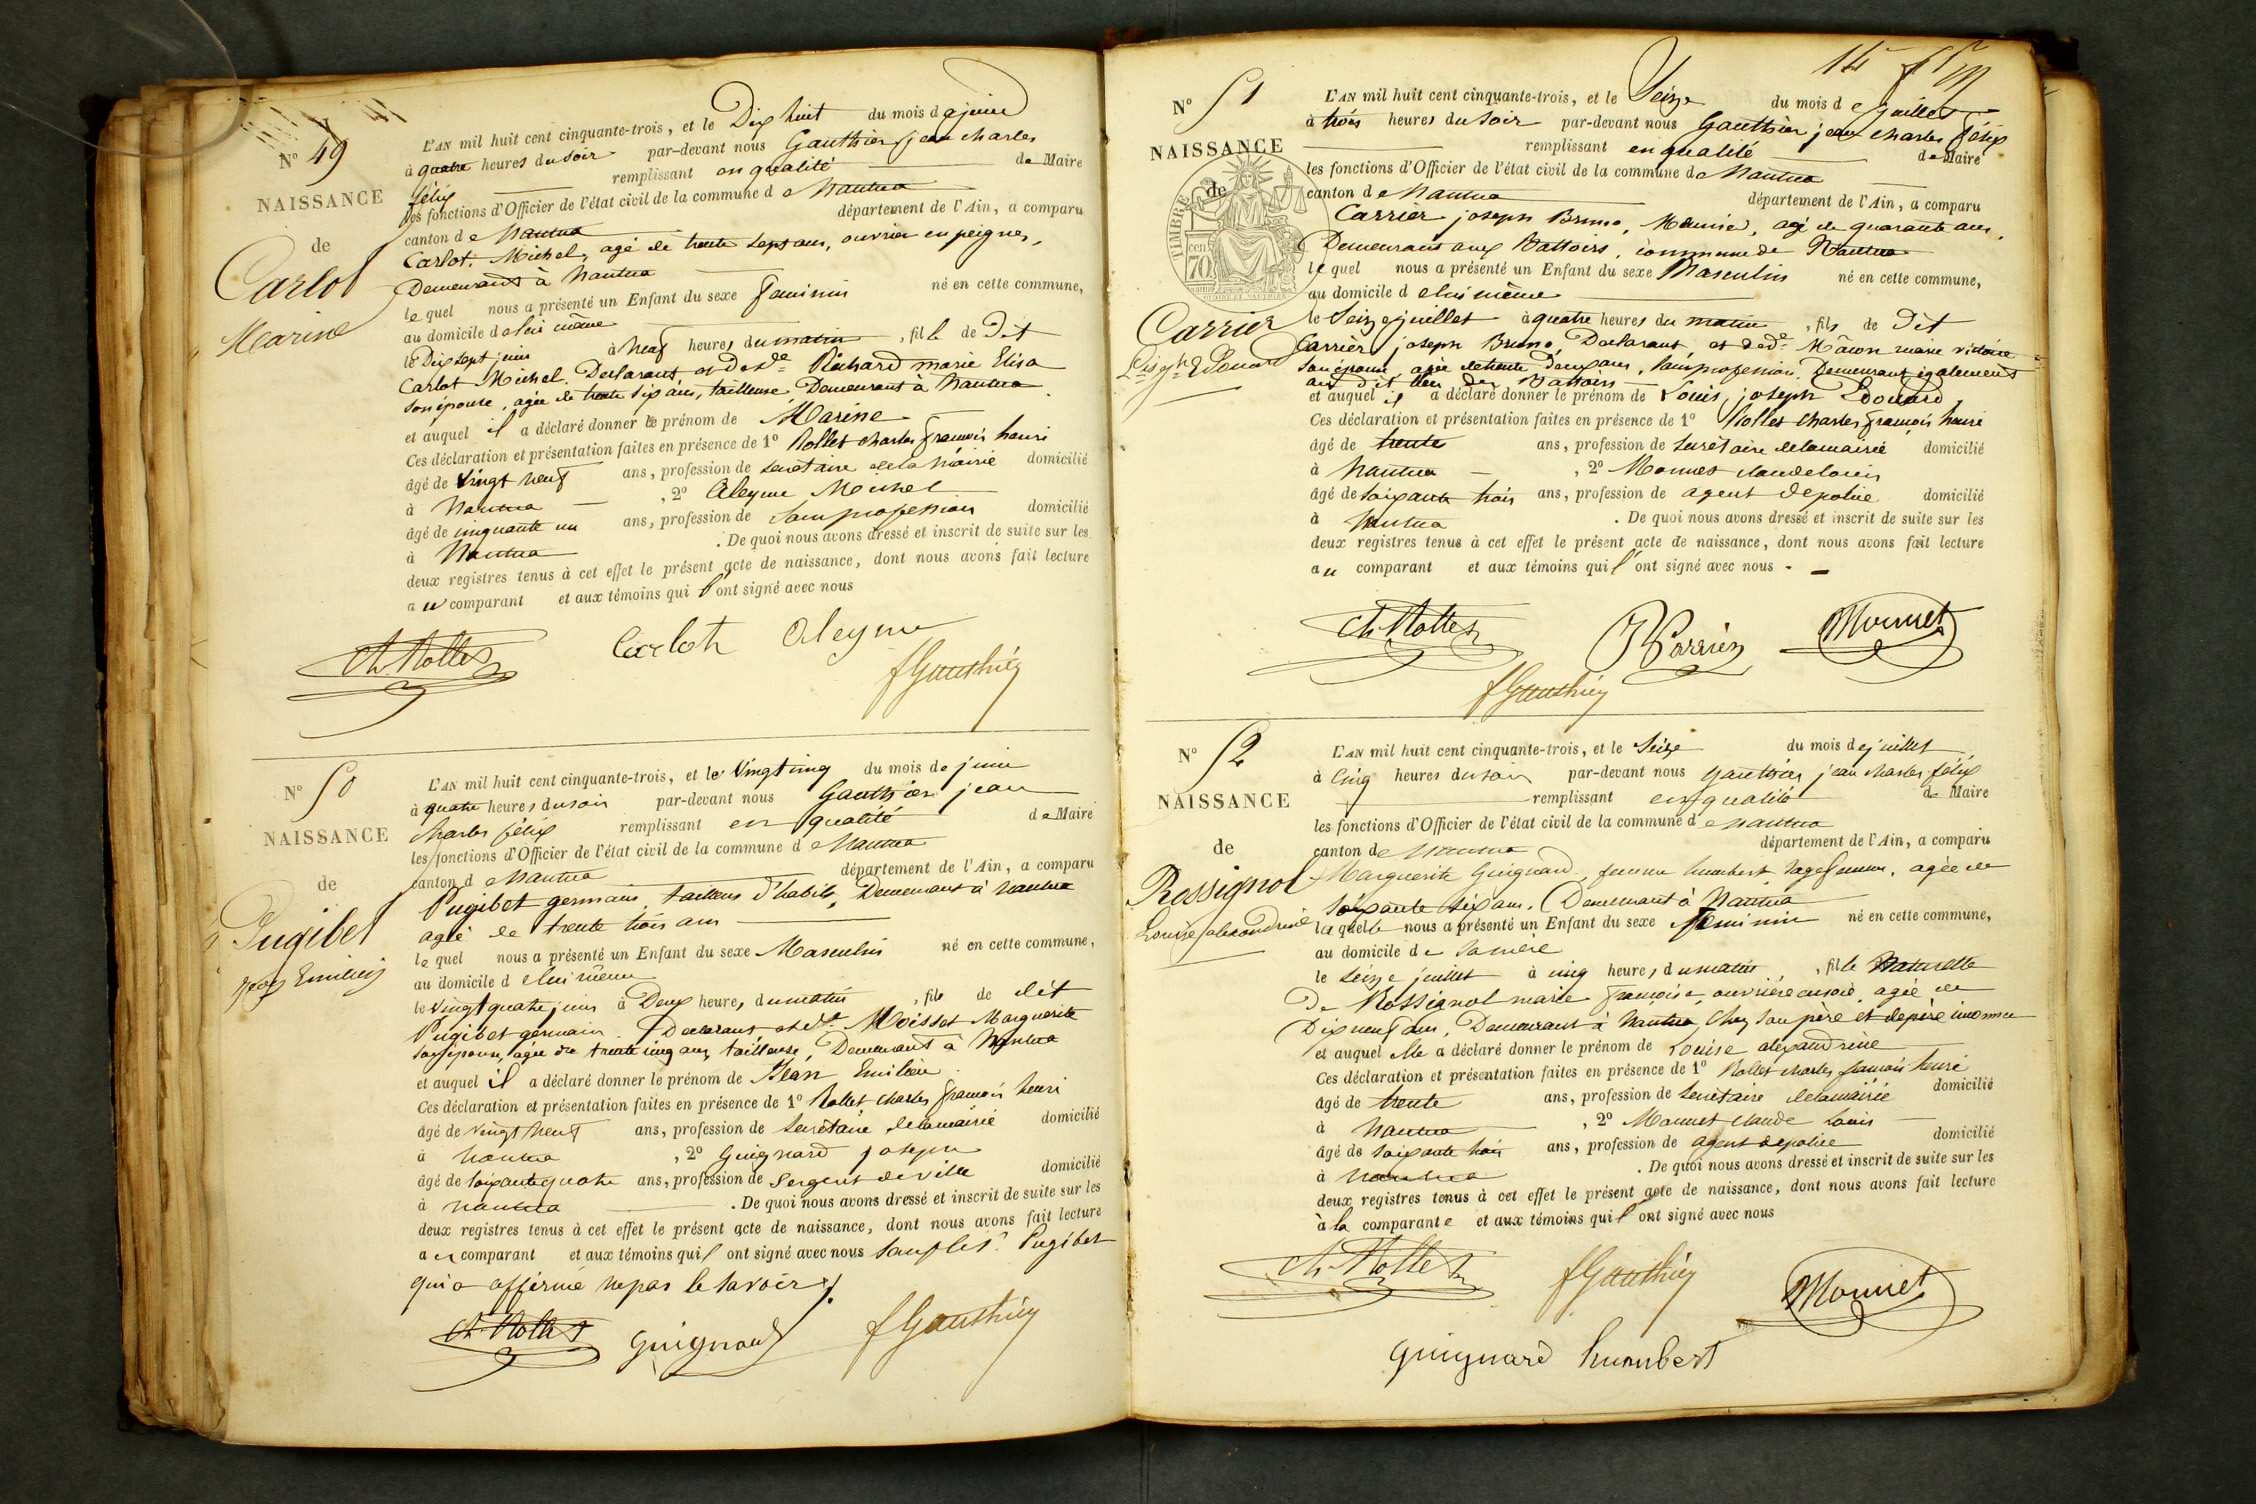 N° 49
NAISSANCE
de
Carlot
Marine
L'AN mil huit cent cinquante-trois, et le Dix huit du mois de juin
à quatre heures du soir par-devant nous Gauthier jean charles
félix remplissant en qualité de Maire
les fonctions d'Officier de l'état civil de la commune de Nantua
canton de Nantua département de l'Ain, a comparu
Carlot Michel, agé de trente sept ans, ouvrier en peignes,
Demeurant à Nantua
lequel nous a présenté un Enfant du sexe feminin né en cette commune,
au domicile de lui même
le Dix sept juin à neuf heures du matin, fille de Dit
Carlot Michel, Declarant et de de Richard marie Elisa
son épouse, agée de trente six ans, tailleuse, Demeurant à Nantua
et auquel il a déclaré donner le prénom de Marine
Ces déclaration et présentation faites en présence de 1° Rollet charles françois henri
âgé de vingt neuf ans, profession de secretaire de la mairie domicilié
à Nantua, 2° Aleyme Michel
âgé de cinquante un ans, profession de sans profession domicilié
à Nantua. De quoi nous avons dressé et inscrit de suite sur les
deux registres tenus à cet effet le présent acte de naissance, dont nous avons fait lecture
au comparant et aux témoins qui l'ont signé avec nous
Ch. Rollet Carlot Aleyme
f Gauthier
N° 50
NAISSANCE
de
Pugibet
Jean Emilien
L'AN mil huit cent cinquante-trois, et le Vingt cinq du mois de juin
à quatre heures du soir par-devant nous Gauthier jean
charles félix remplissant en qualité de Maire
les fonctions d'Officier de l'état civil de la commune de Nantua
canton de Nantua département de l'Ain, a comparu
Pugibet germain, tailleur d'habits, Demeurant à Nantua
agé de trente trois ans
lequel nous a présenté un Enfant du sexe Masculin né en cette commune,
au domicile de lui même
le Vingt quatre juin à Deux heures du matin, fils de dit
Pugibet germain, Declarant et de de Moisset Marguerite
son épouse, agée de trente cinq ans, tailleuse, Demeurant à Nantua
et auquel il a déclaré donner le prénom de Jean Emilien
Ces déclaration et présentation faites en présence de 1° Rollet charles françois henri
âgé de vingt neuf ans, profession de secrétaire de la mairie domicilié
à Nantua, 2° Guignard joseph
âgé de soixante quatre ans, profession de Sergent de ville domicilié
à Nantua. De quoi nous avons dressé et inscrit de suite sur les
deux registres tenus à cet effet le présent acte de naissance, dont nous avons fait lecture
au comparant et aux témoins qui l'ont signé avec nous sauf led. Pugibet
qui a affirmé ne pas le savoir.
Ch. Rollet Guignard f Gauthier
14
N° 51
NAISSANCE
de
TIMBRE
70
Carrier
Louis Jph Edouard
L'AN mil huit cent cinquante-trois, et le Seize du mois de juillet
à trois heures du soir par-devant nous Gauthier jean charles félix
remplissant en qualité de Maire
les fonctions d'Officier de l'état civil de la commune de Nantua
canton de Nantua département de l'Ain, a comparu
Carrier joseph Bruno, Meunier, agé de quarante ans,
Demeurant aux Battoirs, commune de Nantua
lequel nous a présenté un Enfant du sexe Masculin né en cette commune,
au domicile de lui même
le Seize juillet à quatre heures du matin, fils de Dit
Carrier joseph Bruno, Declarant, et de de Mâcon marie victoire
son épouse, agée de trente deux ans, sans profession, Demeurant également
au dit lieu des Battoirs
et auquel il a déclaré donner le prénom de Louis, joseph Edouard
Ces déclaration et présentation faites en présence de 1° Rollet charles françois henri
âgé de trente ans, profession de secrétaire de la mairie domicilié
à Nantua, 2° Monnet claude louis
âgé de soixante trois ans, profession de agent de police domicilié
à Nantua. De quoi nous avons dressé et inscrit de suite sur les
deux registres tenus à cet effet le présent acte de naissance, dont nous avons fait lecture
au comparant et aux témoins qui l'ont signé avec nous
Ch. Rollet Carrier Monnet
f Gauthier
N° 52
NAISSANCE
de
Rossignol
Louise alexandrine
L'AN mil huit cent cinquante-trois, et le Seize du mois de juillet
à Cinq heures du soir par-devant nous Gauthier jean charles félix
remplissant en qualité de Maire
les fonctions d'Officier de l'état civil de la commune de Nantua
canton de Nantua département de l'Ain, a comparu
Marguerite Guignard, femme humbert sage femme, agée de
soixante six ans, Demeurant à Nantua
laquelle nous a présenté un Enfant du sexe feminin né en cette commune,
au domicile de sa mère
le seize juillet à cinq heures du matin, fille Naturelle
de Rossignol marie françoise, ouvriere en soie, agée de
Dix neuf ans, Demeurant à Nantua, chez son père et de père inconnu
et auquel elle a déclaré donner le prénom de Louise alexandrine
Ces déclaration et présentation faites en présence de 1° Rollet charles françois henri
âgé de trente ans, profession de secrétaire de la mairie domicilié
à Nantua, 2° Monnet claude louis
âgé de soixante trois ans, profession de agent de police domicilié
à Nantua. De quoi nous avons dressé et inscrit de suite sur les
deux registres tenus à cet effet le présent acte de naissance, dont nous avons fait lecture
à la comparante et aux témoins qui l'ont signé avec nous
Ch. Rollet f Gauthier Monnet
guignard humbert